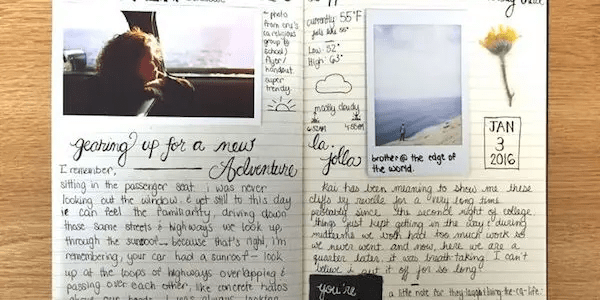 ~ photo
from one's
religious
group (@
school)
flyer/
handout.
super
trendy.
gearing up for a new
Adventure
I remember,
sitting in the passenger seat. i was never
looking out the window. & yet still to this day
i can feel the familiarity, driving down
those same streets & highways we look up,
through the sunroof — because that's right, i'm
remembering, your car had a sunroof — look
up at the loops of highways overlapping &
passing over each other, like concrete halos
above our heads. I was always looking
currently: 55°F
feels like 55°
Low: 52°
High: 63°
mostly cloudy
6:52AM
4:55PM
la
jolla
brother @ the edge of
the world.
JAN
3
2016
Kai has been meaning to show me these
cliffs by revelle for a very long time
probably since the second night of college.
things just kept getting in the way (during
midterms we both had too much work) so
we never went. and now, here we are a
quarter later. it was breath taking. I can't
believe i put it off for so long.
you're
a little note for they laggies living the ca-life: